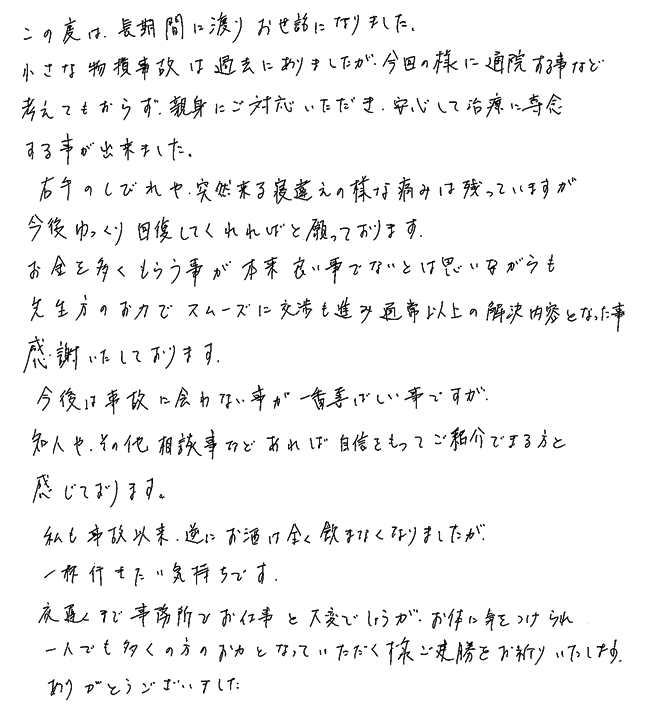 この度は、長期間に渡りお世話になりました。
小さな物損事故は過去にありましたが、今回の様に通院する事など
考えてもおらず、親身にご対応いただき、安心して治療に専念
する事が出来ました。
右手のしびれや、突然来る寝違えの様な痛みは残っていますが
今後ゆっくり回復してくれればと願っております。
お金を多くもらう事が本来良い事でないとは思いながらも
先生方のお力でスムーズに交渉も進み通常以上の解決内容となった事
感謝いたしております。
今後は事故に会わない事が一番喜ばしい事ですが、
知人や、その他相談事などあれば自信をもってご紹介できる方と
感じております。
私も事故以来、逆にお酒は全く飲まなくなりましたが、
一杯付せたい気持ちです。
夜遅くまで事務所でお仕事と大変でしょうが、お体に気をつけられ
一人でも多くの方のお力となっていただく様ご健勝をお祈りいたします。
ありがとうございました